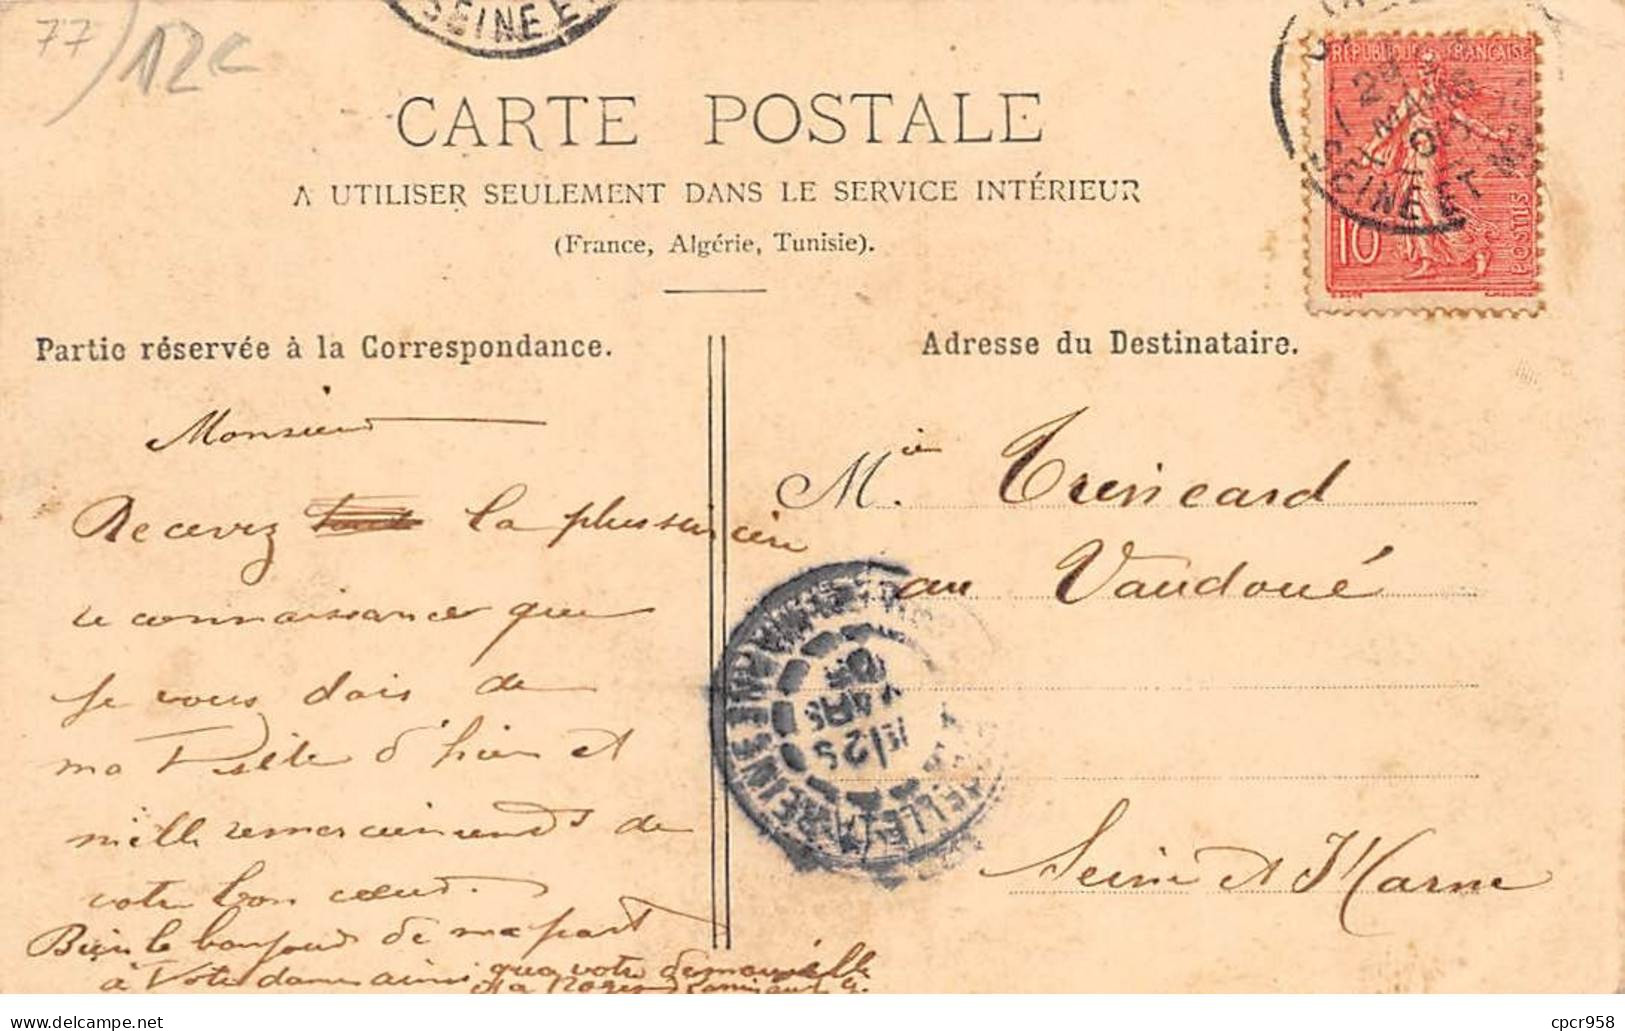 77/12c
SEINE ET
CARTE POSTALE
A UTILISER SEULEMENT DANS LE SERVICE INTÉRIEUR
(France, Algérie, Tunisie).
REPUBLIQUE FRANÇAISE
SEINE ET M
10
POSTES
Partie réservée à la Correspondance.
Adresse du Destinataire.
Monsieur
Recevez la plus sincère
reconnaissance que
je vous dois de
ma d'hier et
mille remerciements de
votre bon cœur.
Bien le bonjour de ma part
à Votre dame ainsi que votre demoiselle
au Vaudoué
Seine et Marne
25
MARS
cpcr958